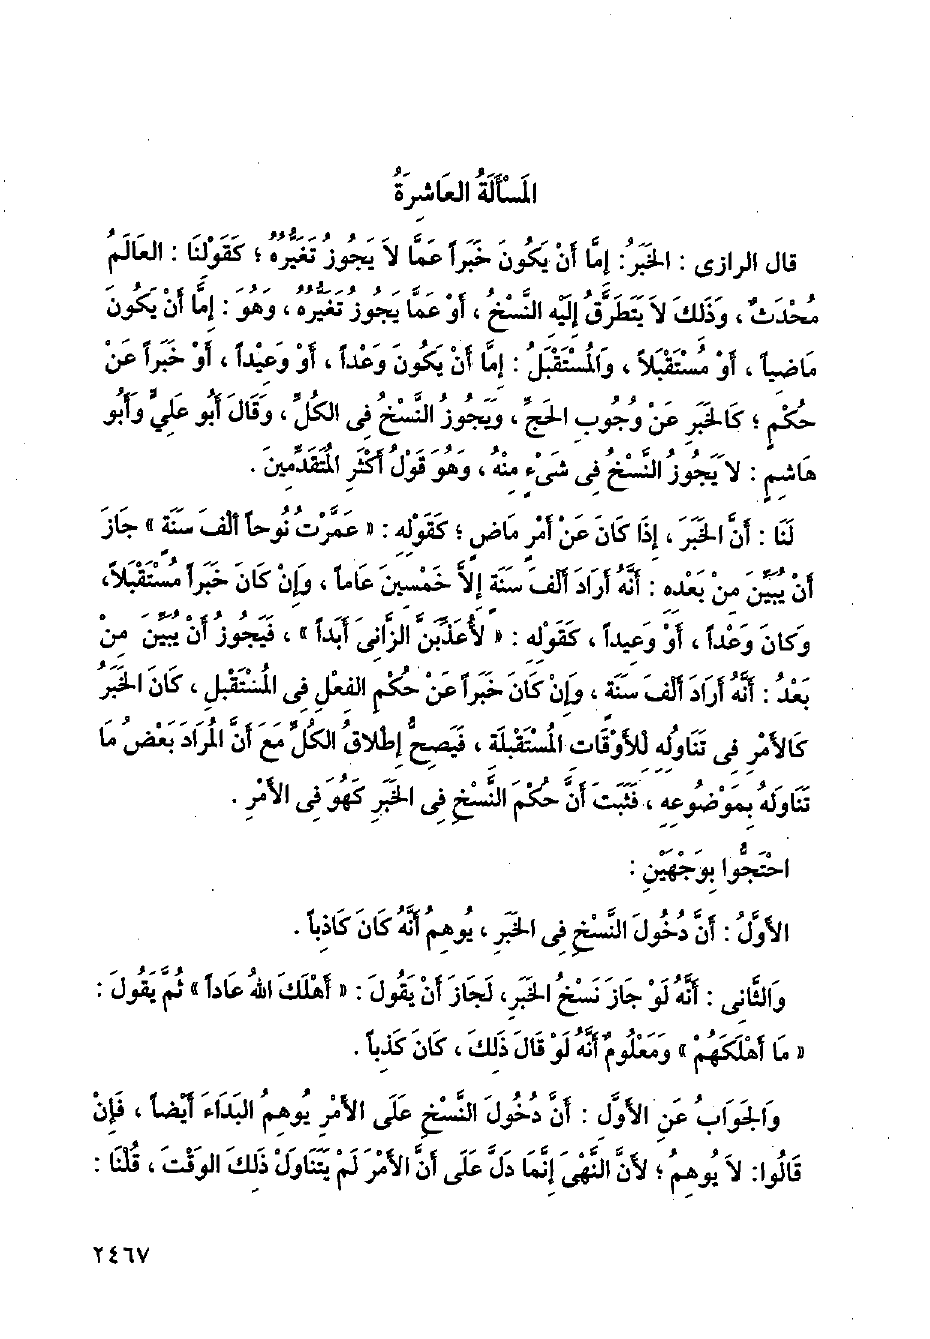 المَسْأَلَةُ العَاشِرَةُ
قال الرازى : الخَبَرُ: إمَّا أَنْ يَكُونَ خَبَراً عَمَّا لاَ يَجُوزُ تَغَيُّرُهُ ؛ كَقَوْلِنَا : العَالَمُ
مُحْدَثٌ ، وَذَلِكَ لاَ يَتَطَرَّقُ إِلَيْهِ النَّسْخُ ، أَوْ عَمَّا يَجُوزُ تَغَيُّرُهُ ، وَهُوَ : إمَّا أَنْ يَكُونَ
مَاضِياً ، أَوْ مُسْتَقْبَلاً ، وَالمُسْتَقْبَلُ : إمَّا أَنْ يَكُونَ وَعْداً ، أَوْ وَعِيداً ، أَوْ خَبَراً عَنْ
حُكْمٍ ؛ كَالخَبَرِ عَنْ وُجُوبِ الحَجِّ ، وَيَجُوزُ النَّسْخُ فِى الكُلِّ ، وَقَالَ أَبُو عَلِىٍّ وَأَبُو
هَاشِمٍ : لاَ يَجُوزُ النَّسْخُ فِى شَىْءٍ مِنْهُ ، وَهُوَ قَوْلُ أَكْثَرِ المُتَقَدِّمِينَ .
لَنَا : أَنَّ الخَبَرَ ، إِذَا كَانَ عَنْ أَمْرٍ مَاضٍ ؛ كَقَوْلِهِ : « عَمَّرْتُ نُوحاً أَلْفَ سَنَةٍ » جَازَ
أَنْ يُبَيِّنَ مِنْ بَعْدِهِ : أَنَّهُ أَرَادَ أَلْفَ سَنَةٍ إِلاَّ خَمْسِينَ عَاماً ، وَإِنْ كَانَ خَبَراً مُسْتَقْبَلاً،
وَكَانَ وَعْداً ، أَوْ وَعِيداً ، كَقَوْلِهِ : « لأُعَذِّبَنَّ الزَّانِىَ أَبَداً » ، فَيَجُوزُ أَنْ يُبَيِّنَ مِنْ
بَعْدُ : أَنَّهُ أَرَادَ أَلْفَ سَنَةٍ ، وَإِنْ كَانَ خَبَراً عَنْ حُكْمِ الفِعْلِ فِى المُسْتَقْبَلِ ، كَانَ الخَبَرُ
كَالأَمْرِ فِى تَنَاوُلِهِ لِلأَوْقَاتِ المُسْتَقْبَلَةِ ، فَيَصِحُّ إِطْلاَقُ الكُلِّ مَعَ أَنَّ المُرَادَ بَعْضُ مَا
تَنَاوَلَهُ بِمَوْضُوعِهِ ، فَثَبَتَ أَنَّ حُكْمَ النَّسْخِ فِى الخَبَرِ كَهُوَ فِى الأَمْرِ .
احْتَجُّوا بِوَجْهَيْنِ :
الأَوَّلُ : أَنَّ دُخُولَ النَّسْخِ فِى الخَبَرِ ، يُوهِمُ أَنَّهُ كَانَ كَاذِباً .
وَالثَّانِى : أَنَّهُ لَوْ جَازَ نَسْخُ الخَبَرِ، لَجَازَ أَنْ يَقُولَ : « أَهْلَكَ اللهُ عَاداً » ثُمَّ يَقُولَ :
« مَا أَهْلَكَهُمْ » وَمَعْلُومٌ أَنَّهُ لَوْ قَالَ ذَلِكَ ، كَانَ كَذِباً .
وَالجَوَابُ عَنِ الأَوَّلِ : أَنَّ دُخُولَ النَّسْخِ عَلَى الأَمْرِ يُوهِمُ البَدَاءَ أَيْضاً ، فَإِنْ
قَالُوا: لاَ يُوهِمُ ؛ لأَنَّ النَّهْىَ إِنَّمَا دَلَّ عَلَى أَنَّ الأَمْرَ لَمْ يَتَنَاوَلْ ذَلِكَ الوَقْتَ ، قُلْنَا :
٢٤٦٧